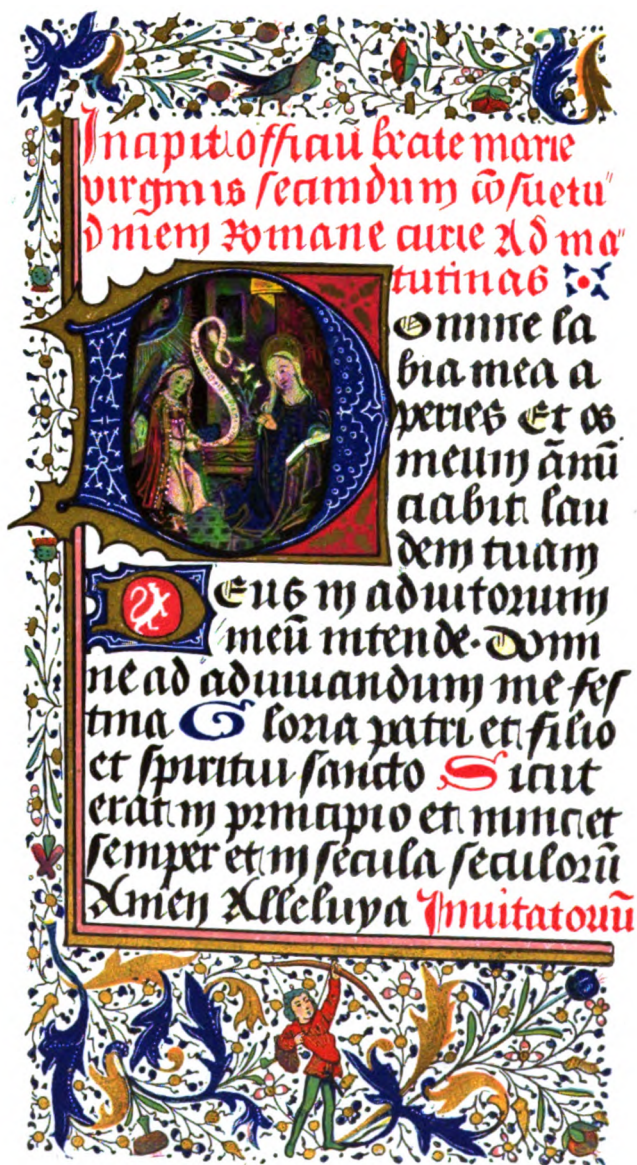 Incipit officiū beate marie
virginis secundum cōsuetu
dinem Romane curie Ad ma
tutinas
Domine la
bia mea a
peries Et os
meum ānū
ciabit lau
dem tuam
Deus in adiutorium
meū intende. Domi
ne ad adiuuandum me fes
tina Gloria patri et filio
et spiritui sancto Sicut
erat in principio et nunc et
semper et in secula seculorū
Amen Alleluya Inuitatoriū